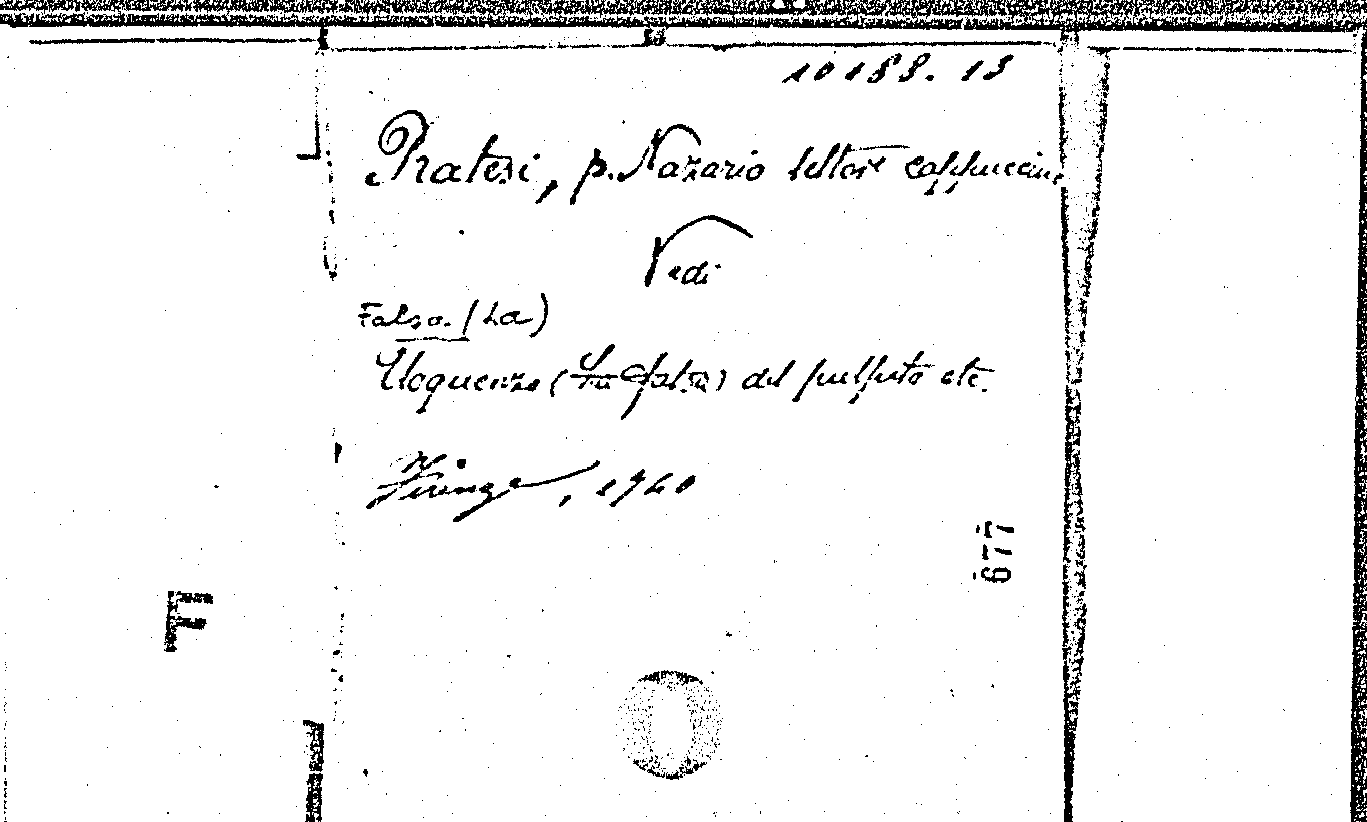 10188. 13
Pratesi, p. Nazario lettore cappuccino
Vedi
Falsa (La)
Eloquenza (La falsa) del pulpito etc.
Firenze, 1740
677
F